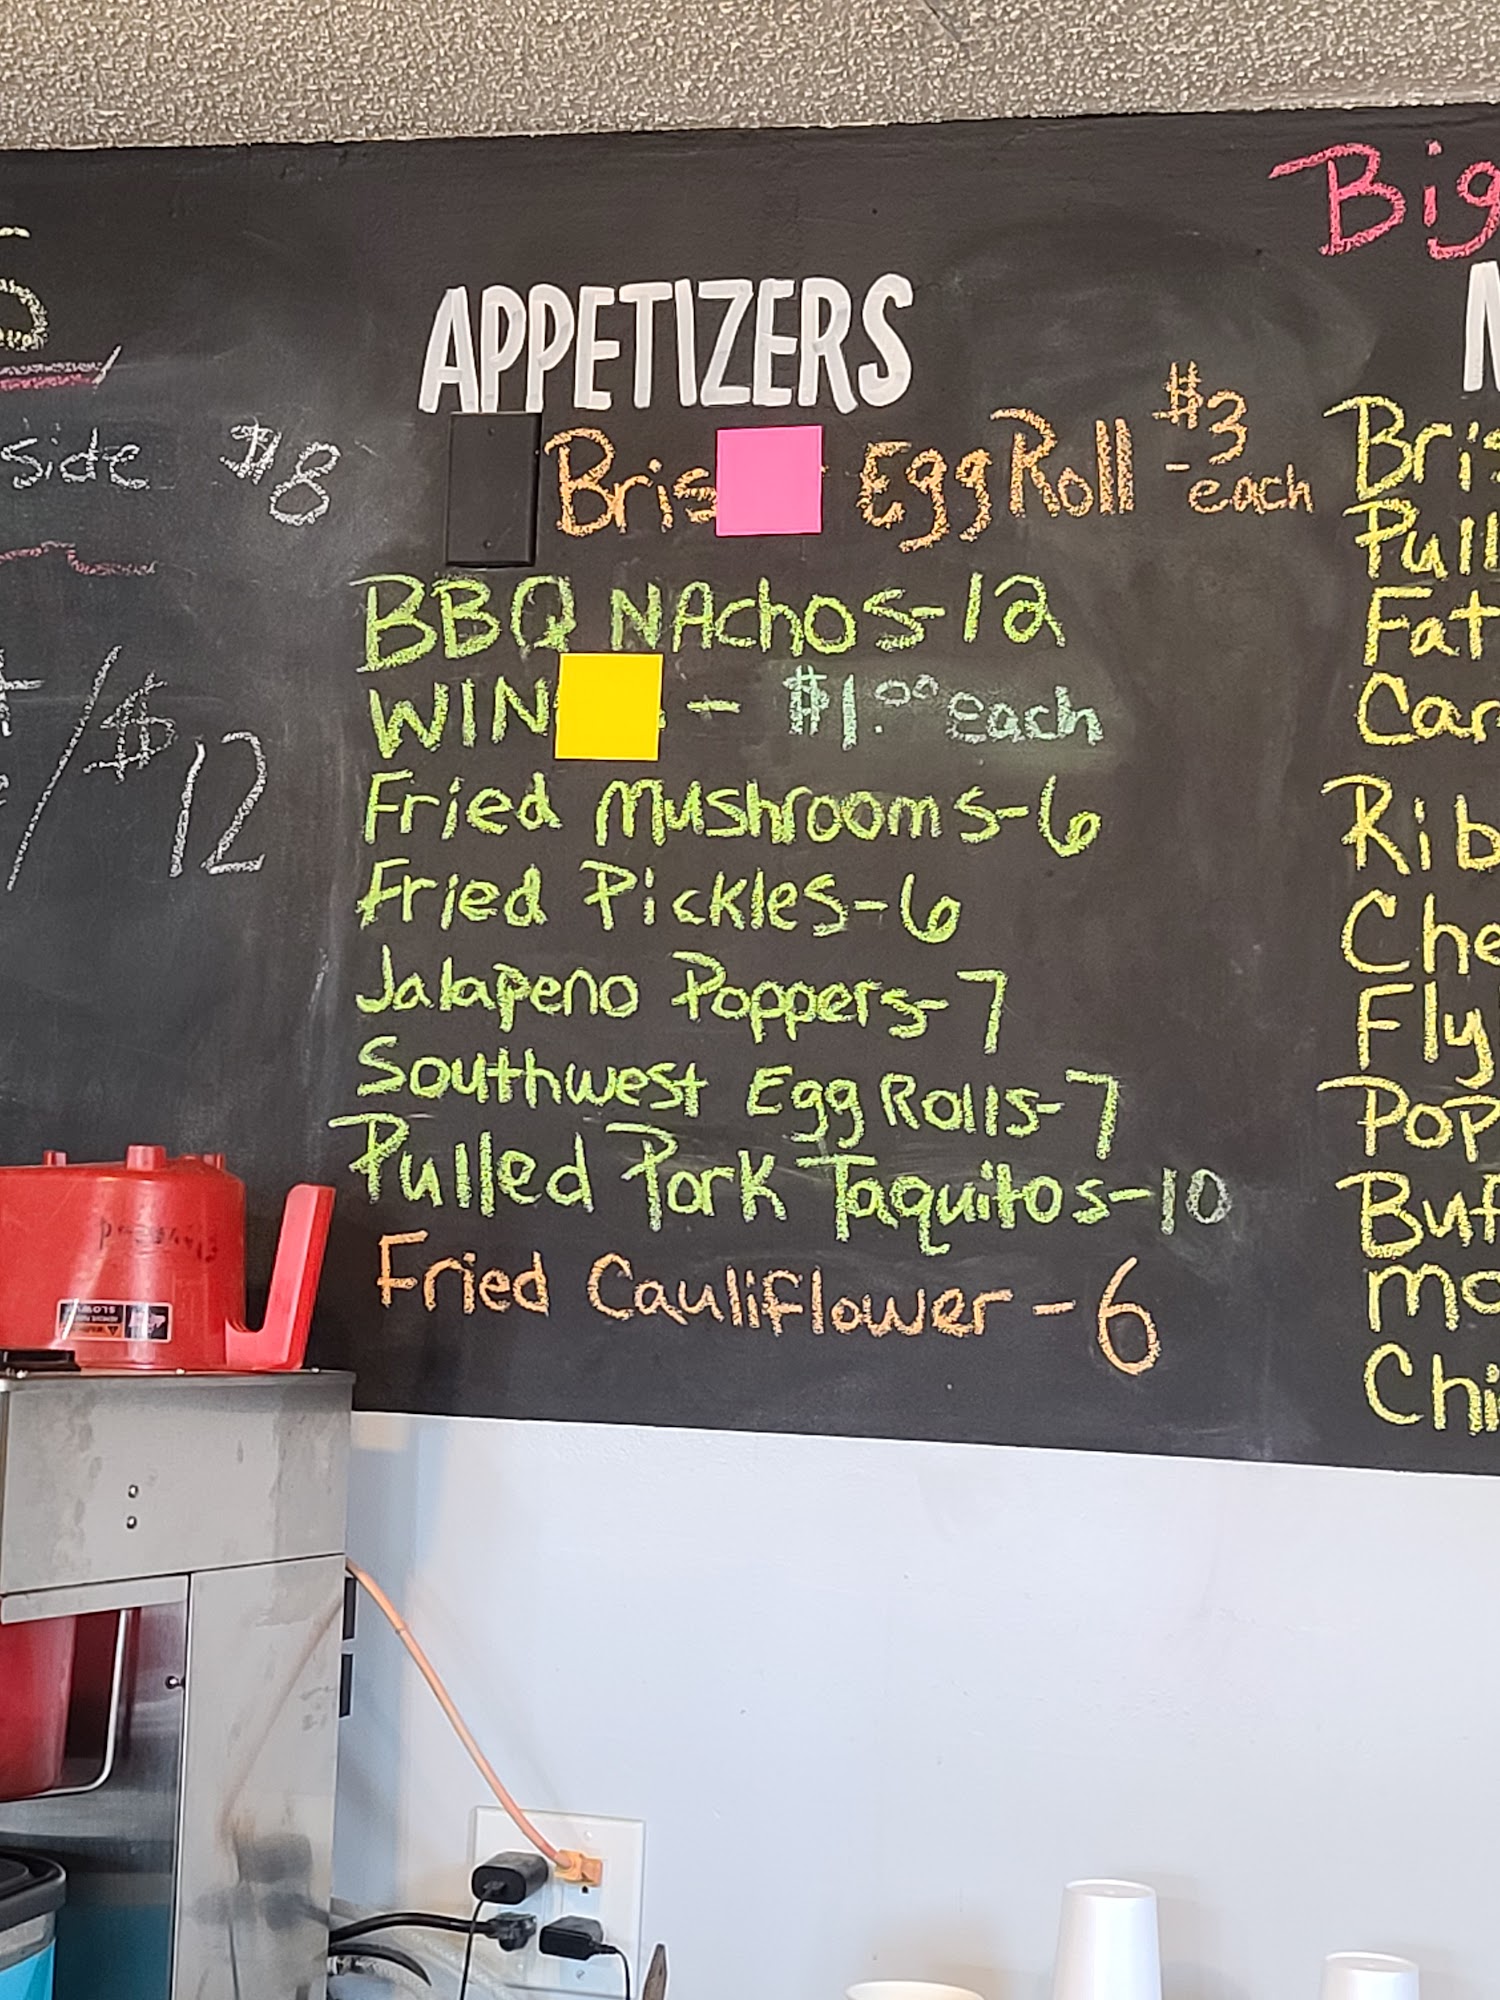 Big
APPETIZERS
Egg Roll $3 each
side $8
BBQ NAchos-12
- $1.00 each
/ $12
Fried Mushrooms-6
Fried Pickles-6
Jalapeno Poppers-7
Southwest Egg Rolls-7
Pulled Pork Taquitos-10
Fried Cauliflower-6
Bris
Pull
Fat
Car
Rib
Che
Fly
Pop
Buf
mo
Chi